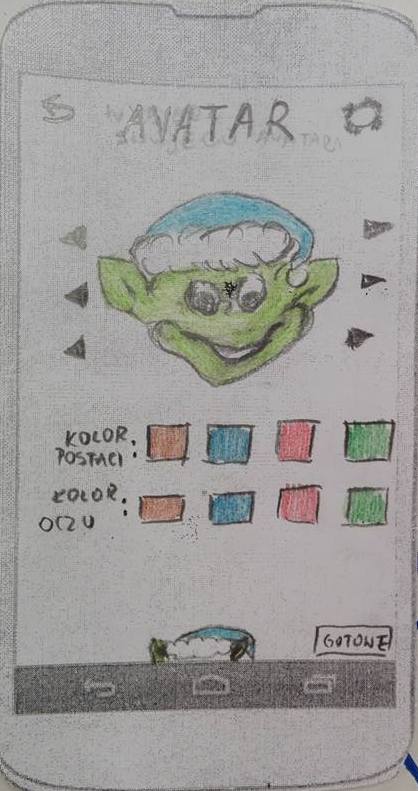 AVATAR
KOLOR
POSTACI:
KOLOR:
OCZU
GOTOWE